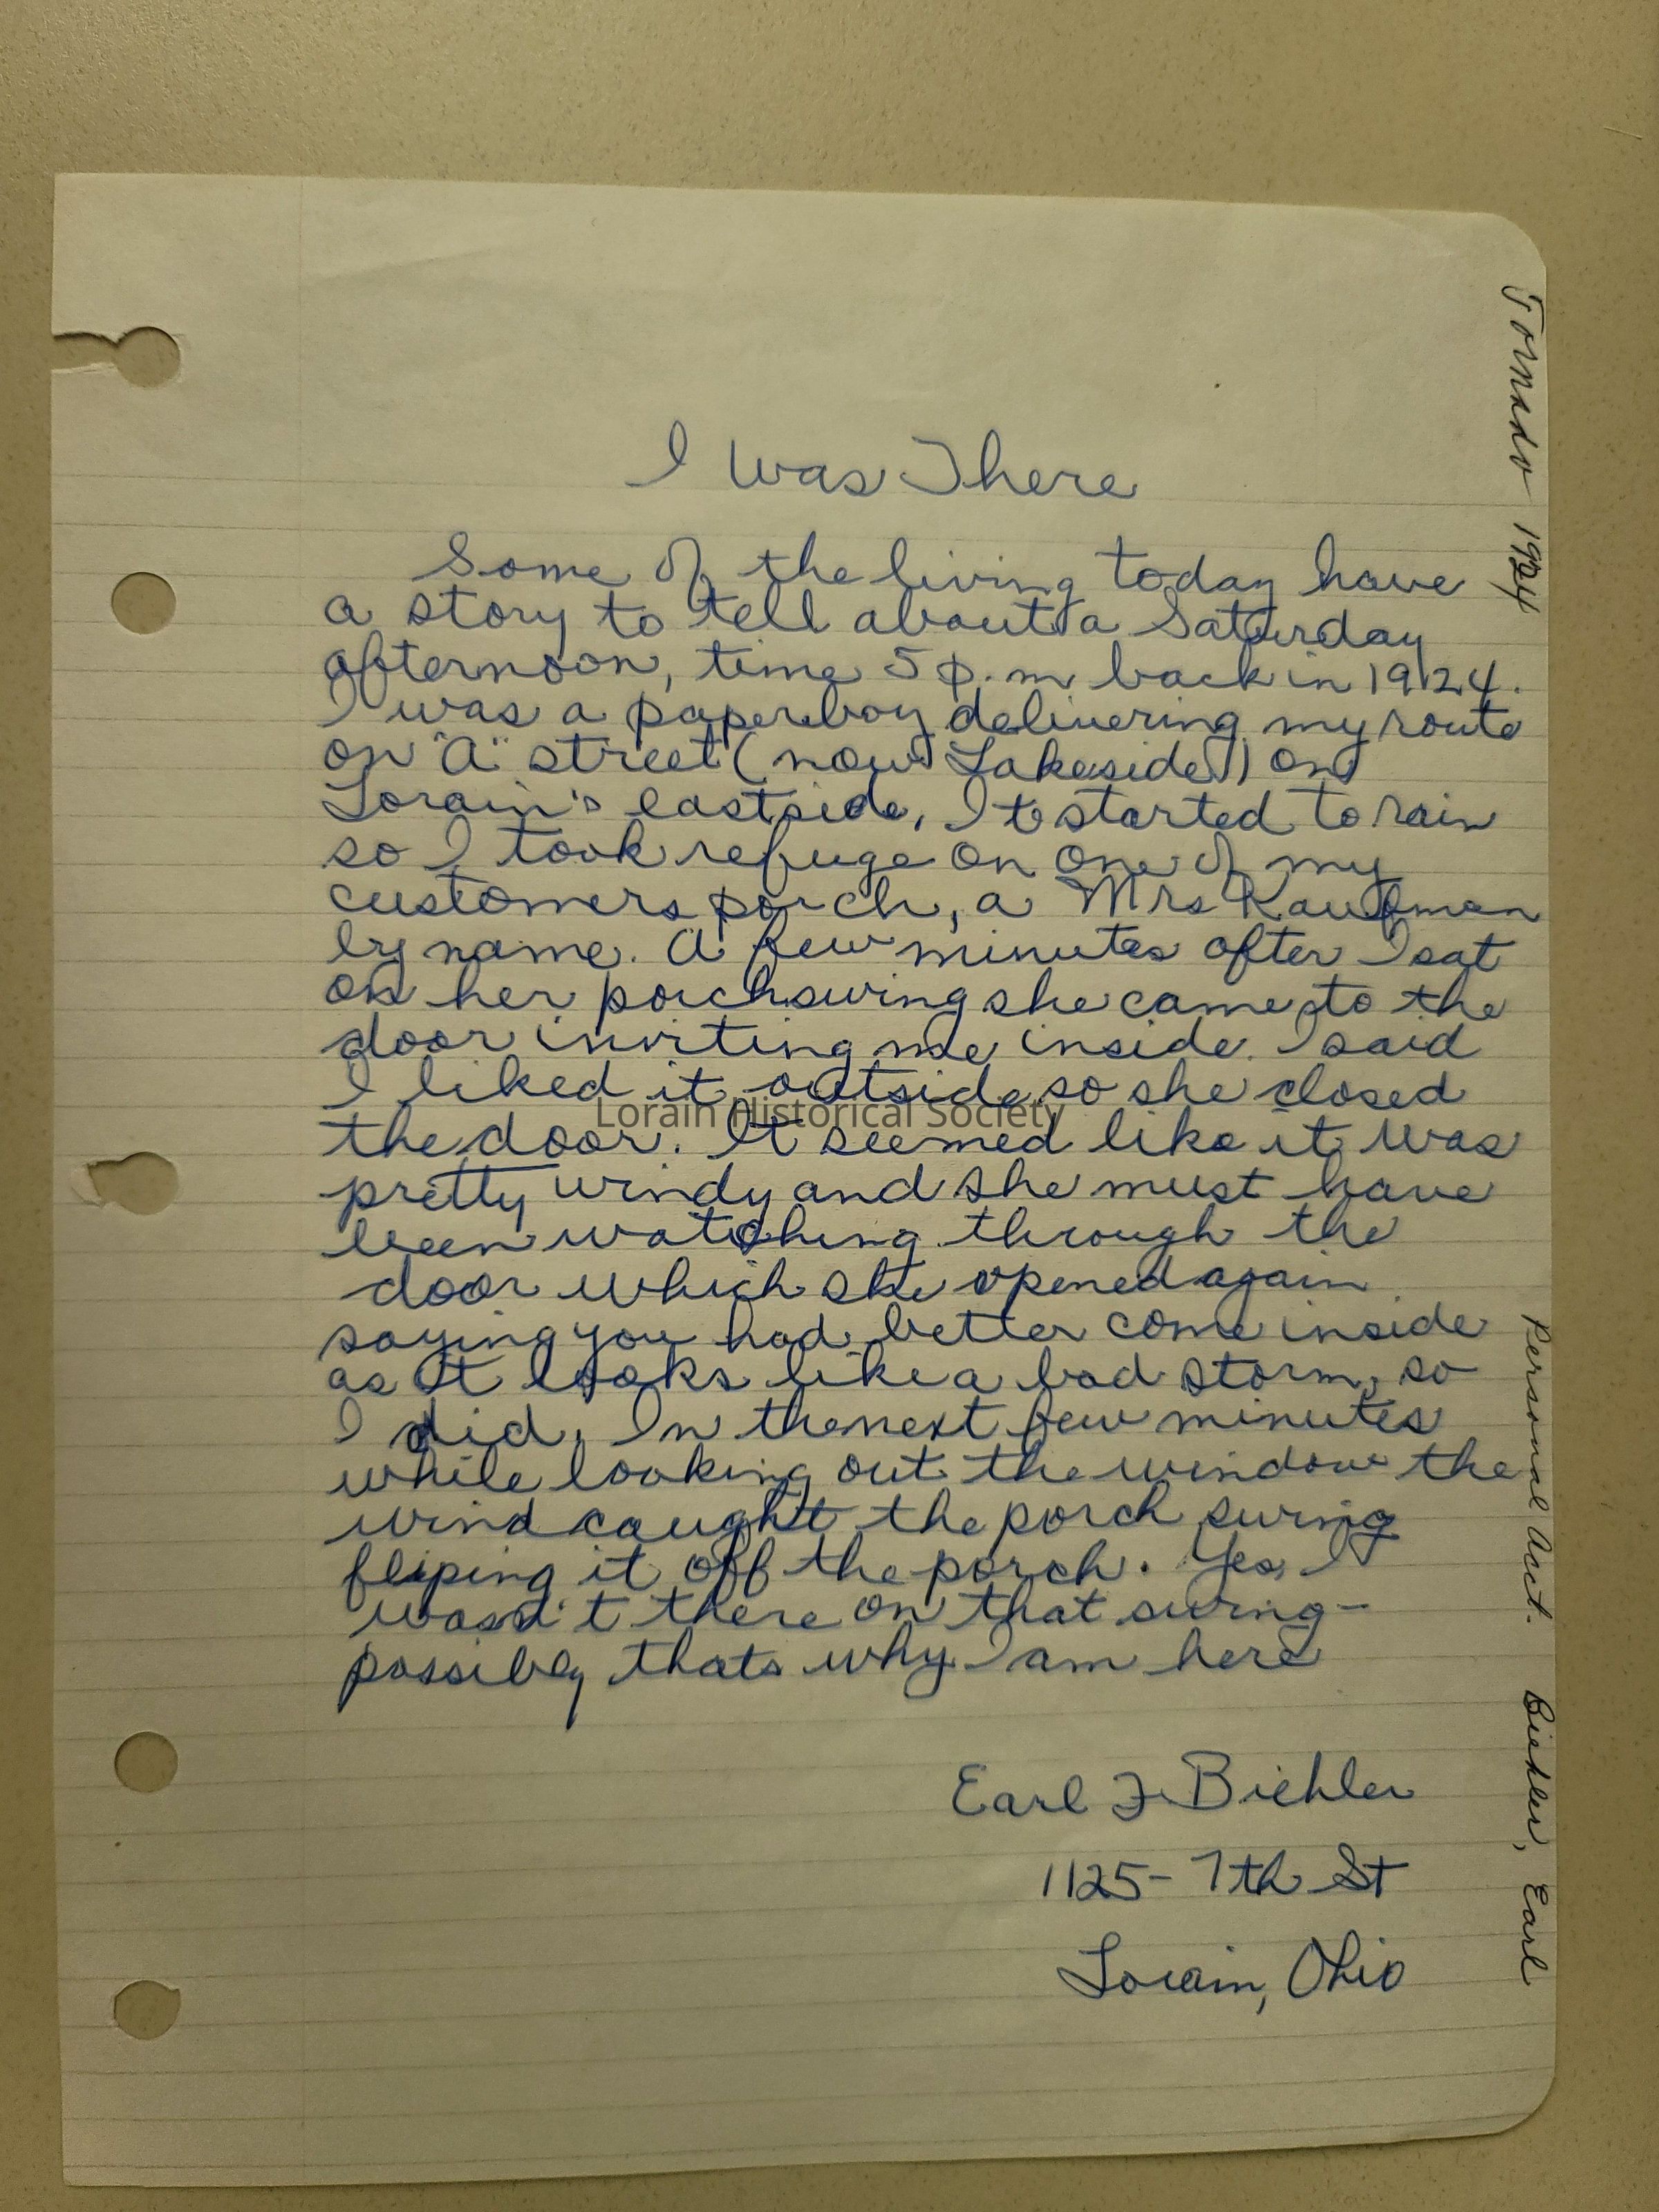 I Was There
Some of the living today have
a story to tell about a Saturday
afternoon, time 5 p.m back in 1924.
I was a paperboy delivering my route
on "A" street (now Lakeside) on
Lorain's eastside, It started to rain
so I took refuge on one of my
customers porch, a Mrs Kaufman
by name. A few minutes after I sat
on her porchswing she came to the
door inviting me inside. I said
I liked it outside so she closed
the door. It seemed like it was
pretty windy and she must have
been watching through the
door which she opened again
saying you had better come inside
as it looks like a bad storm, so
I did. In the next few minutes
while looking out the window the
wind caught the porch swing
fliping it off the porch. Yes, I
wasn't there on that swing -
possibly thats why I am here
Earl F Biehler
1125 - 7th St
Lorain, Ohio
Tornado 1924
Personal Acct.
Biehler, Earl
Lorain Historical Society